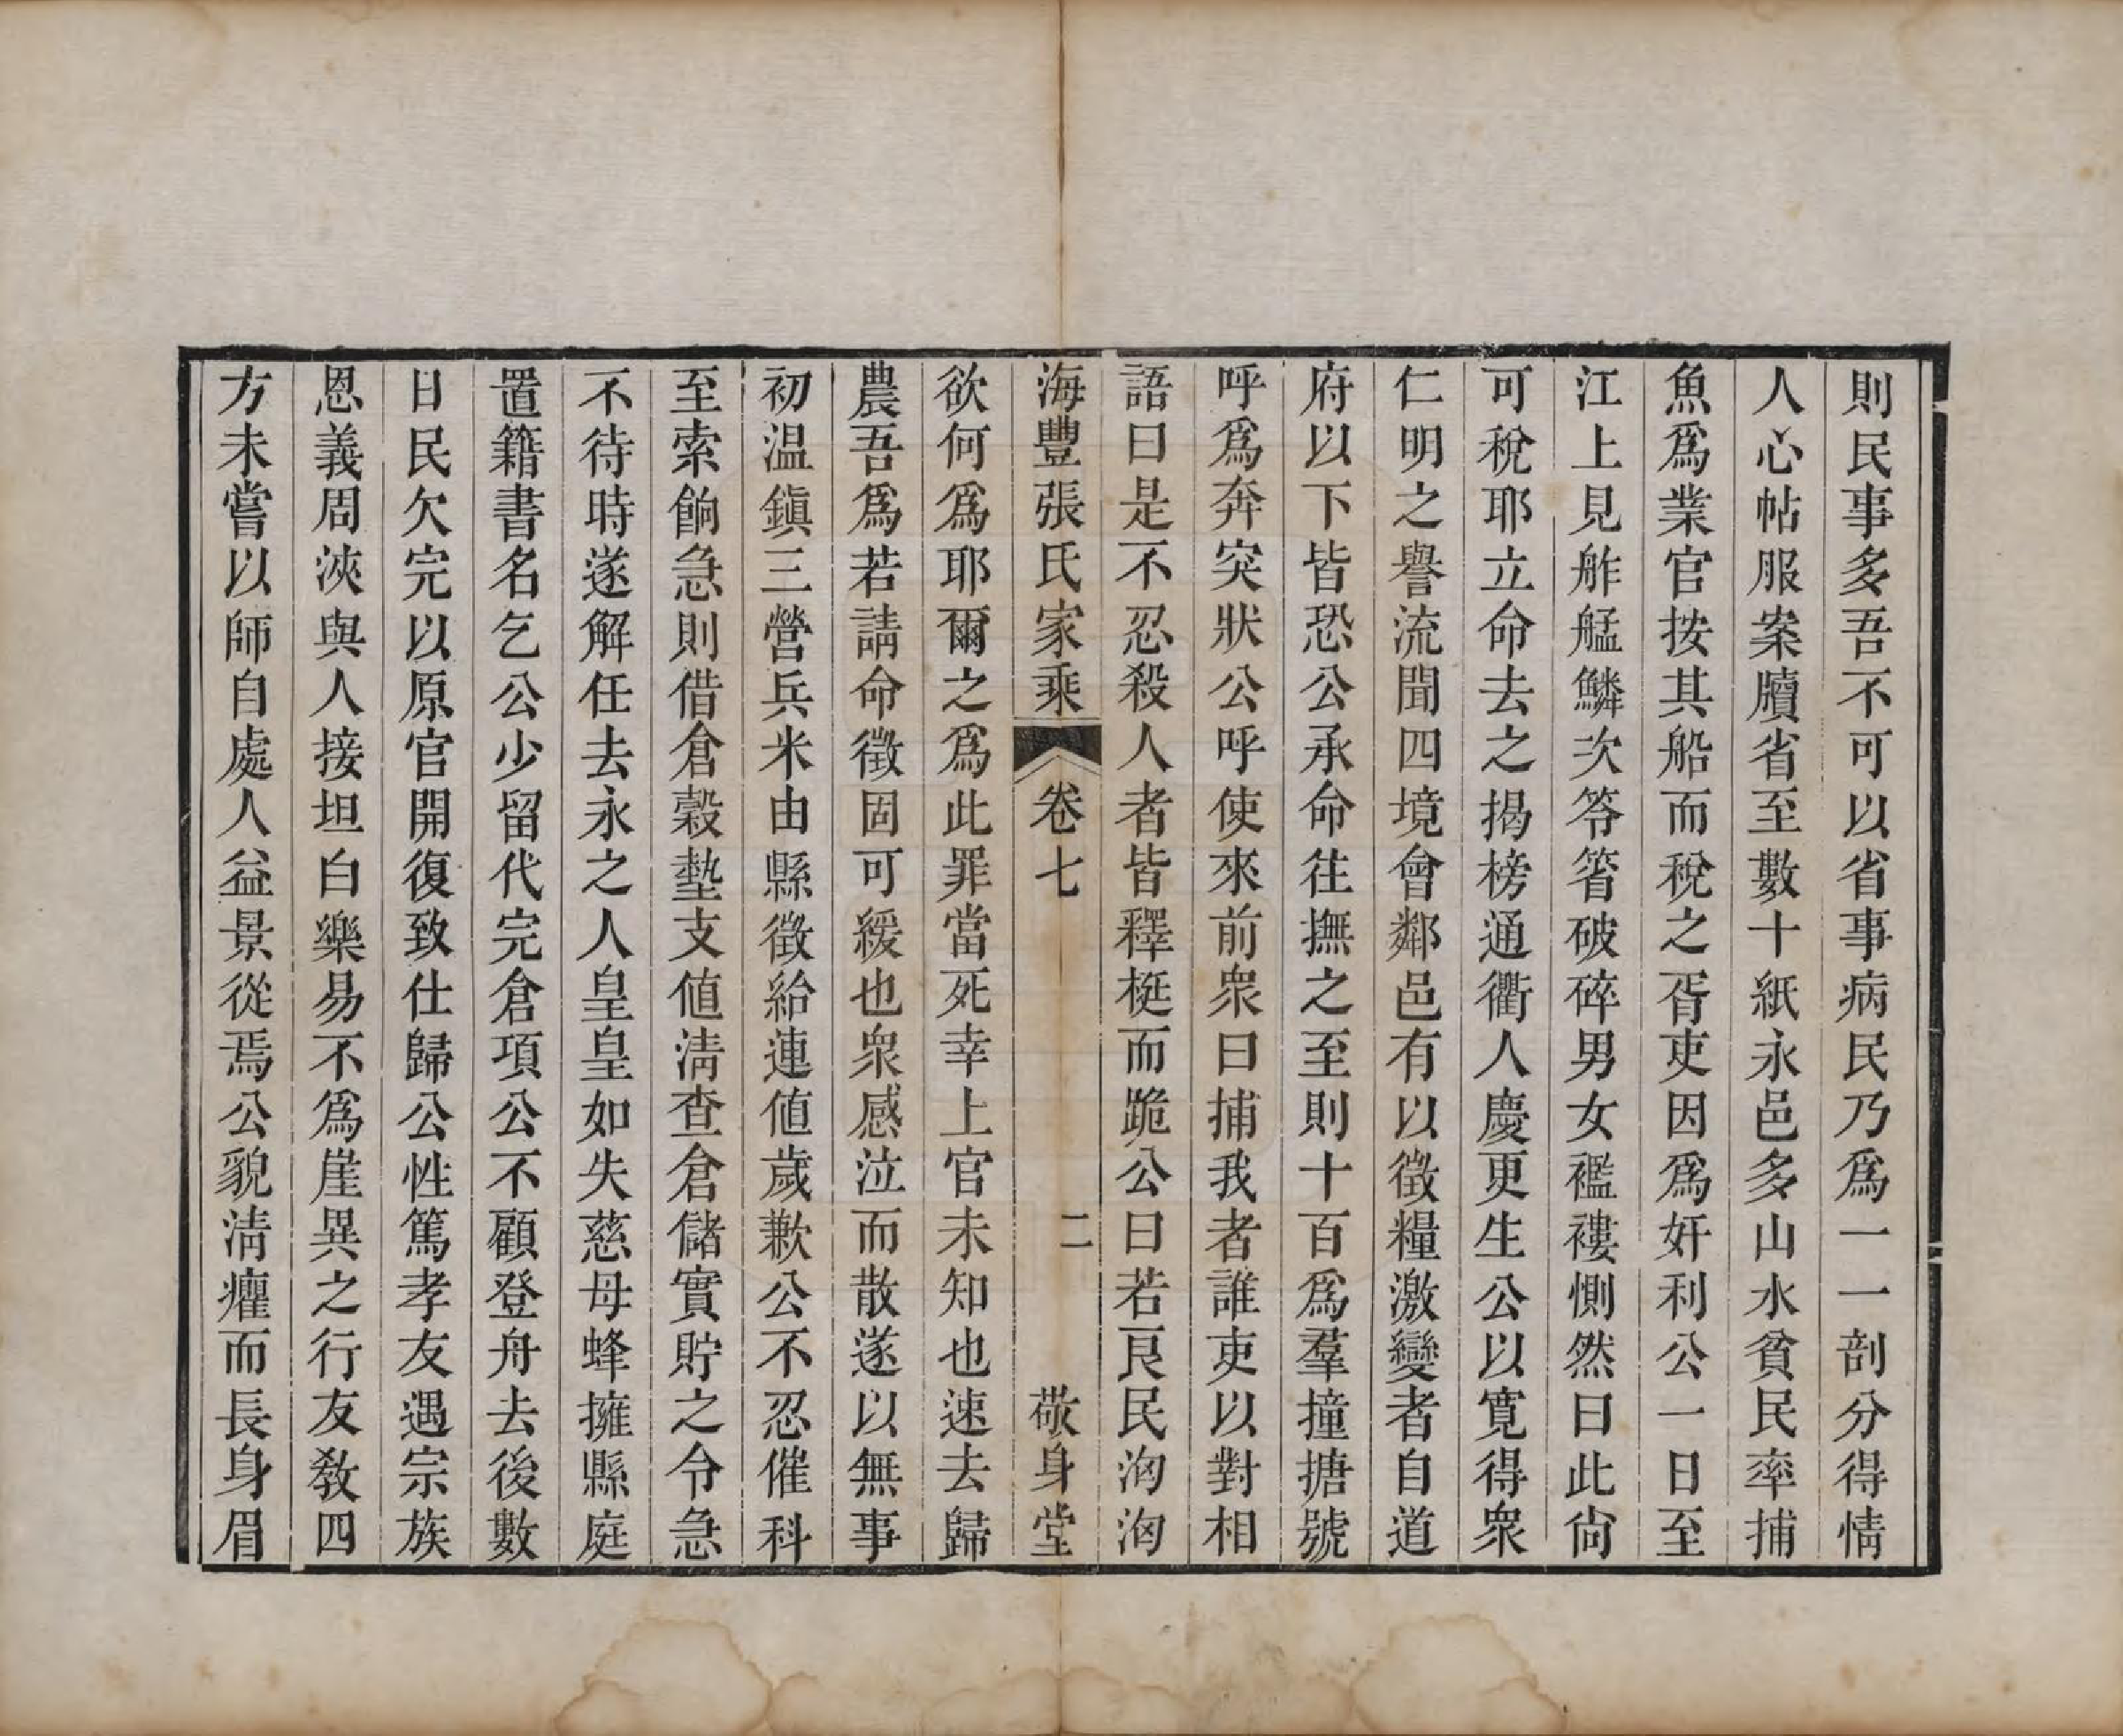 則民事多吾不可以省事病民乃爲一一剖分得情
人心帖服案牘省至數十紙永邑多山水貧民率捕
魚爲業官按其船而稅之胥吏因爲奸利公一日至
江上見舴艋鱗次笭箵破碎男女襤褸惻然曰此尙
可稅耶立命去之揭榜通衢人慶更生公以寬得衆
仁明之譽流聞四境會鄰邑有以徵糧激變者自道
府以下皆恐公承命往撫之至則十百爲羣撞搪號
呼爲奔突狀公呼使來前衆曰捕我者誰吏以對相
語曰是不忍殺人者皆釋梃而跪公曰若良民洶洶
海豐張氏家乘 卷七 二 敬身堂
欲何爲耶爾之爲此罪當死幸上官未知也速去歸
農吾爲若請命徵固可緩也衆感泣而散遂以無事
初温鎭三營兵米由縣徵給連值歲歉公不忍催科
至索餉急則借倉穀墊支值淸查倉儲實貯之令急
不待時遂解任去永之人皇皇如失慈母蜂擁縣庭
置籍書名乞公少留代完倉項公不顧登舟去後數
日民欠完以原官開復致仕歸公性篤孝友遇宗族
恩義周浹與人接坦白樂易不爲崖異之行友敎四
方未嘗以師自處人益景從焉公貌淸癯而長身眉